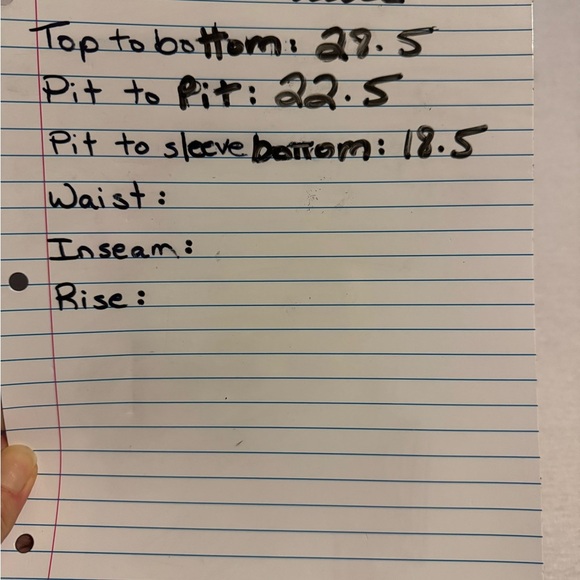 Top to bottom: 29.5
Pit to Pit: 22.5
Pit to sleeve bottom: 18.5
Waist:
Inseam:
Rise: